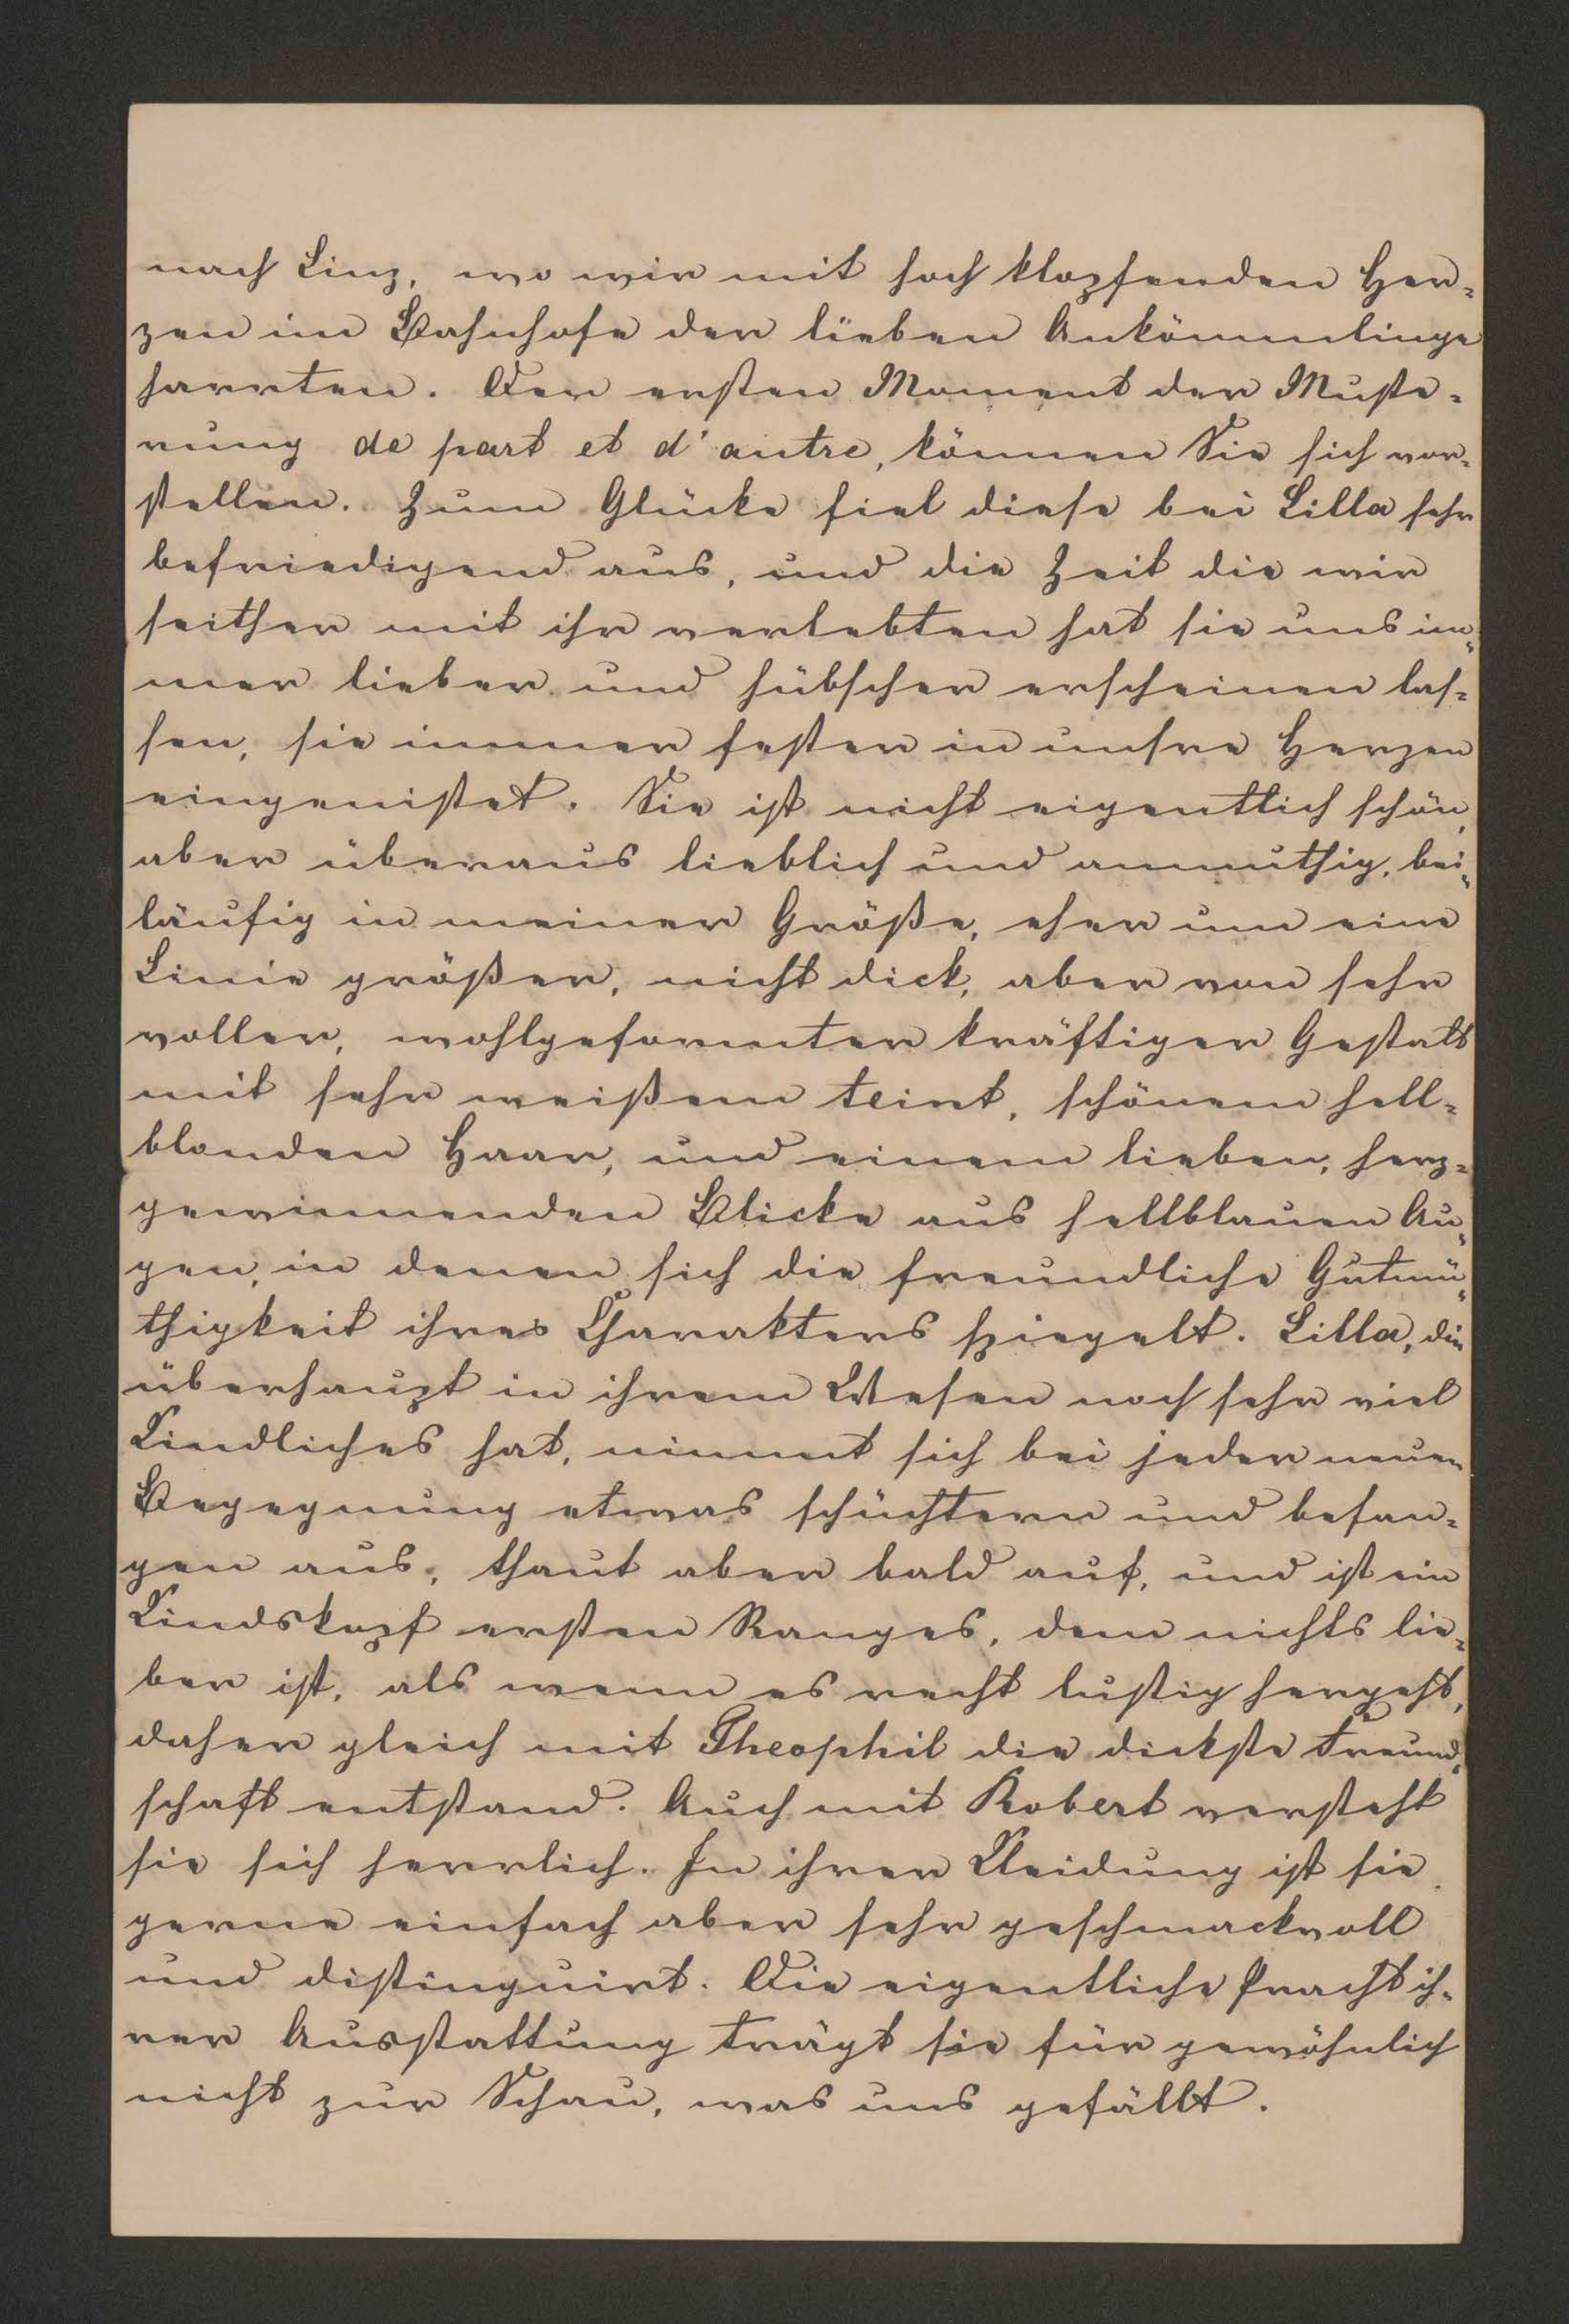 nach Linz, wo wir mit hoch klopfenden Her-
zen im Bahnhofe der lieben Ankömmlinge
harrten. Den ersten Moment der Muste-
rung de part et d'autre, können Sie sich vor-
stellen. Zum Glücke fiel diese bei Lilla sehr
befriedigend aus, und die Zeit die wir
seither mit ihr verlebten hat sie uns im-
mer lieber und hübscher erscheinen las-
sen, sie immer fester in unsre Herzen
eingenistet. Sie ist nicht eigentlich schön,
aber überaus lieblich und anmuthig, bei-
läufig in meiner Größe, eher um eine
Linie größer, nicht dick, aber von sehr
voller, wohlgeformter kräftiger Gestalt
mit sehr weißem teint, schönem hell-
blonden Haar, und einem lieben, herz-
gewinnenden Blicke aus hellblauen Au-
gen, in denen sich die freundliche Gutmü-
thigkeit ihres Charakters spiegelt. Lilla, die
überhaupt in ihrem Wesen noch sehr viel
Kindliches hat, nimmt sich bei jeder neuen
Begegnung etwas schüchtern und befan-
gen aus, thaut aber bald auf, und ist ein
Kindskopf ersten Ranges, dem nichts lie-
ber ist, als wenn es recht lustig hergeht,
daher gleich mit Theophil die dickste Freund-
schaft entstand. Auch mit Robert versteht
sie sich herrlich. In ihrer Kleidung ist sie
gerne einfach aber sehr geschmackvoll
und distinguirt. Die eigentliche Pracht ih-
rer Ausstattung trägt sie für gewöhnlich
nicht zur Schau, was uns gefällt.